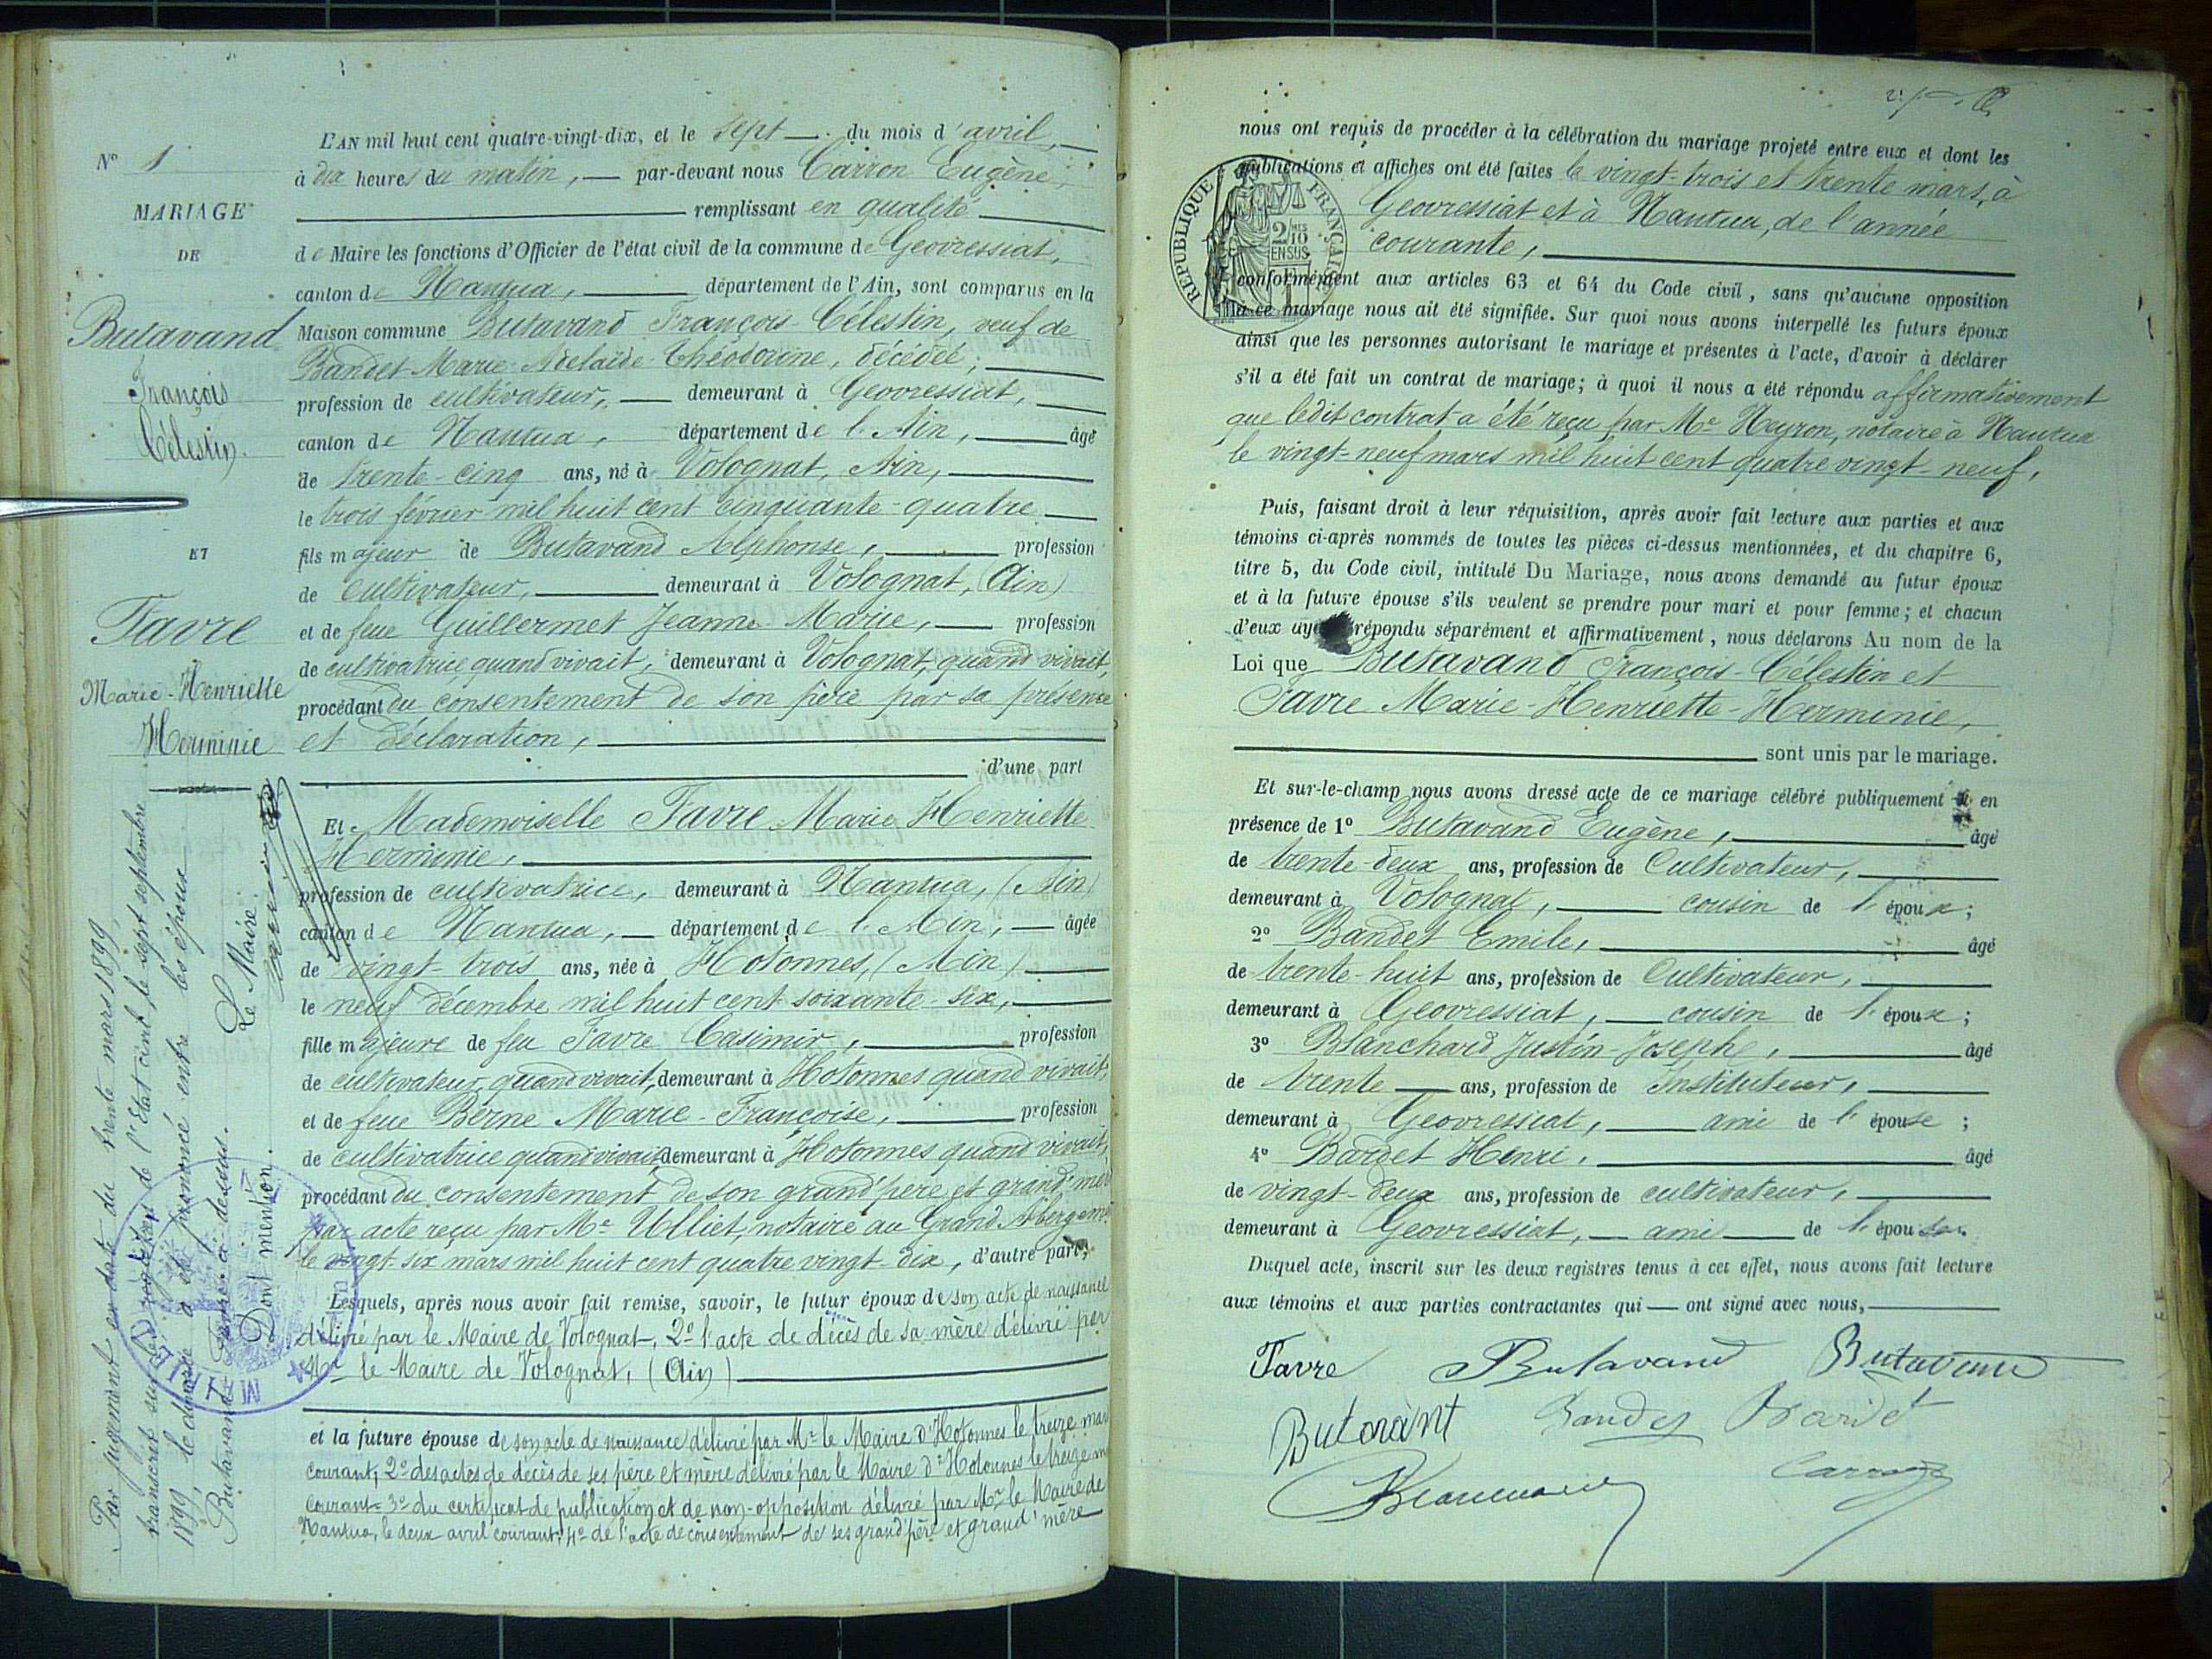 N° 1
MARIAGE
DE
Butavand
François
Célestin.
ET
Favre
Marie-Henriette
Herminie
Par jugement en date du trente mars 1899,
transcrit sur les registres de l'Etat civil, le sept septembre
1899, le divorce a été prononcé entre les époux
Butavand Favre ci-dessus.
Dont mention.
Le Maire.
L'AN mil huit cent quatre-vingt-dix, et le sept du mois d'avril,
à dix heures du matin, par-devant nous Carron Eugène,
remplissant en qualité
de Maire les fonctions d'Officier de l'état civil de la commune de Geovressiat,
canton de Nantua, département de l'Ain, sont comparus en la
Maison commune Butavand François-Célestin, veuf de
Bandet Marie-Adelaïde-Théodorine, décédée;
profession de cultivateur, demeurant à Geovressiat,
canton de Nantua, département de l'Ain, âgé
de trente-cinq ans, né à Volognat, Ain,
le trois février mil huit cent cinquante-quatre
fils majeur de Butavand Alphonse, profession
de cultivateur, demeurant à Volognat, (Ain)
et de feue Guillermet Jeanne Marie, profession
de cultivatrice, quand vivait, demeurant à Volognat, quand vivait,
procédant du consentement de son père par sa présence
et déclaration,
d'une part
Et Mademoiselle Favre Marie Henriette
Herminie,
profession de cultivatrice, demeurant à Nantua, (Ain)
canton de Nantua, département de l'Ain, âgée
de vingt-trois ans, née à Hotonnes, (Ain)
le neuf décembre mil huit cent soixante-six,
fille majeure de feu Favre Casimir, profession
de cultivateur, quand vivait, demeurant à Hotonnes quand vivait,
et de feue Berne Marie-Françoise, profession
de cultivatrice quand vivait demeurant à Hotonnes quand vivait,
procédant du consentement de son grand'père et grand'mère
par acte reçu par Me Ulliet, notaire au Grand Abergement
le vingt-six mars mil huit cent quatre vingt-dix, d'autre part;
Lesquels, après nous avoir fait remise, savoir, le futur époux de son acte de naissance
délivré par le Maire de Volognat, 2° l'acte de décès de sa mère délivré par
Mr le Maire de Volognat, (Ain)
et la future épouse de son acte de naissance délivré par Mr le Maire d'Hotonnes le treize mars
courant, 2° des actes de décès de ses père et mère délivré par le Maire d'Hotonnes le treize
courant 3° du certificat de publication et de non-opposition délivré par Mr le Maire de
Nantua, le deux avril courant, 4° de l'acte de consentement de ses grand'père et grand'mère
nous ont requis de procéder à la célébration du mariage projeté entre eux et dont les
publications et affiches ont été faites le vingt-trois et trente mars, à
Geovressiat et à Nantua, de l'année
courante,
REPUBLIQUE FRANÇAISE
2/10 MES
EN SUS
conformément aux articles 63 et 64 du Code civil, sans qu'aucune opposition
à ce mariage nous ait été signifiée. Sur quoi nous avons interpellé les futurs époux
ainsi que les personnes autorisant le mariage et présentes à l'acte, d'avoir à déclarer
s'il a été fait un contrat de mariage; à quoi il nous a été répondu affirmativement
que ledit contrat a été reçu par Me Neyron, notaire à Nantua
le vingt-neuf mars mil huit cent quatre vingt-neuf,
Puis, faisant droit à leur réquisition, après avoir fait lecture aux parties et aux
témoins ci-après nommés de toutes les pièces ci-dessus mentionnées, et du chapitre 6,
titre 5, du Code civil, intitulé Du Mariage, nous avons demandé au futur époux
et à la future épouse s'ils veulent se prendre pour mari et pour femme; et chacun
d'eux aya répondu séparément et affirmativement, nous déclarons Au nom de la
Loi que Butavand François-Célestin et
Favre Marie-Henriette-Herminie,
sont unis par le mariage.
Et sur-le-champ nous avons dressé acte de ce mariage célébré publiquement en
présence de 1° Butavand Eugène, âgé
de trente-deux ans, profession de Cultivateur,
demeurant à Volognat, cousin de l'époux;
2° Bandet Emile, âgé
de trente-huit ans, profession de Cultivateur,
demeurant à Geovressiat, cousin de l'époux;
3° Blanchard Justin-Joseph, âgé
de trente ans, profession de Instituteur,
demeurant à Geovressiat, ami de l'épouse;
4° Bardet Henri, âgé
de vingt-deux ans, profession de cultivateur,
demeurant à Geovressiat, ami de l'épouse.
Duquel acte, inscrit sur les deux registres tenus à cet effet, nous avons fait lecture
aux témoins et aux parties contractantes qui ont signé avec nous,
Favre Butavand Butavand
Butavant Bandet Bardet
Blanchard Carron